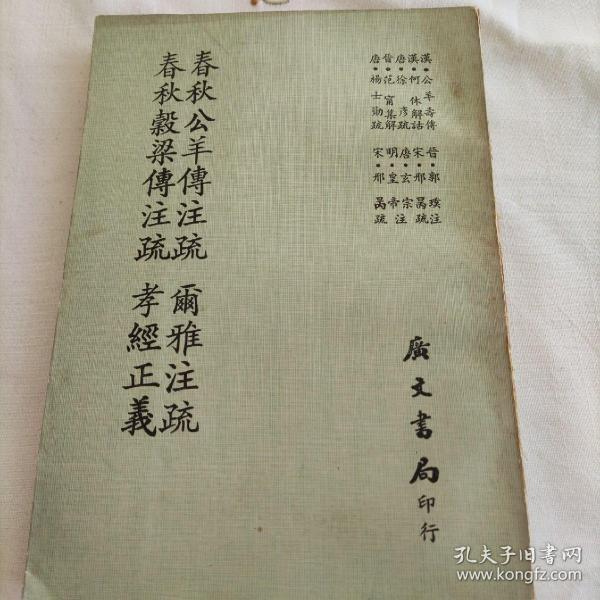 漢•公羊壽傳
漢•何休解詁
唐•徐彥疏
晉•范甯集解
唐•楊士勛疏
晉•郭璞注
宋•邢昺疏
唐•玄宗
明•皇帝注
宋•邢昺疏
廣文書局印行
春秋公羊傳注疏
春秋穀梁傳注疏
爾雅注疏
孝經正義
孔夫子旧书网
www.kongfz.com